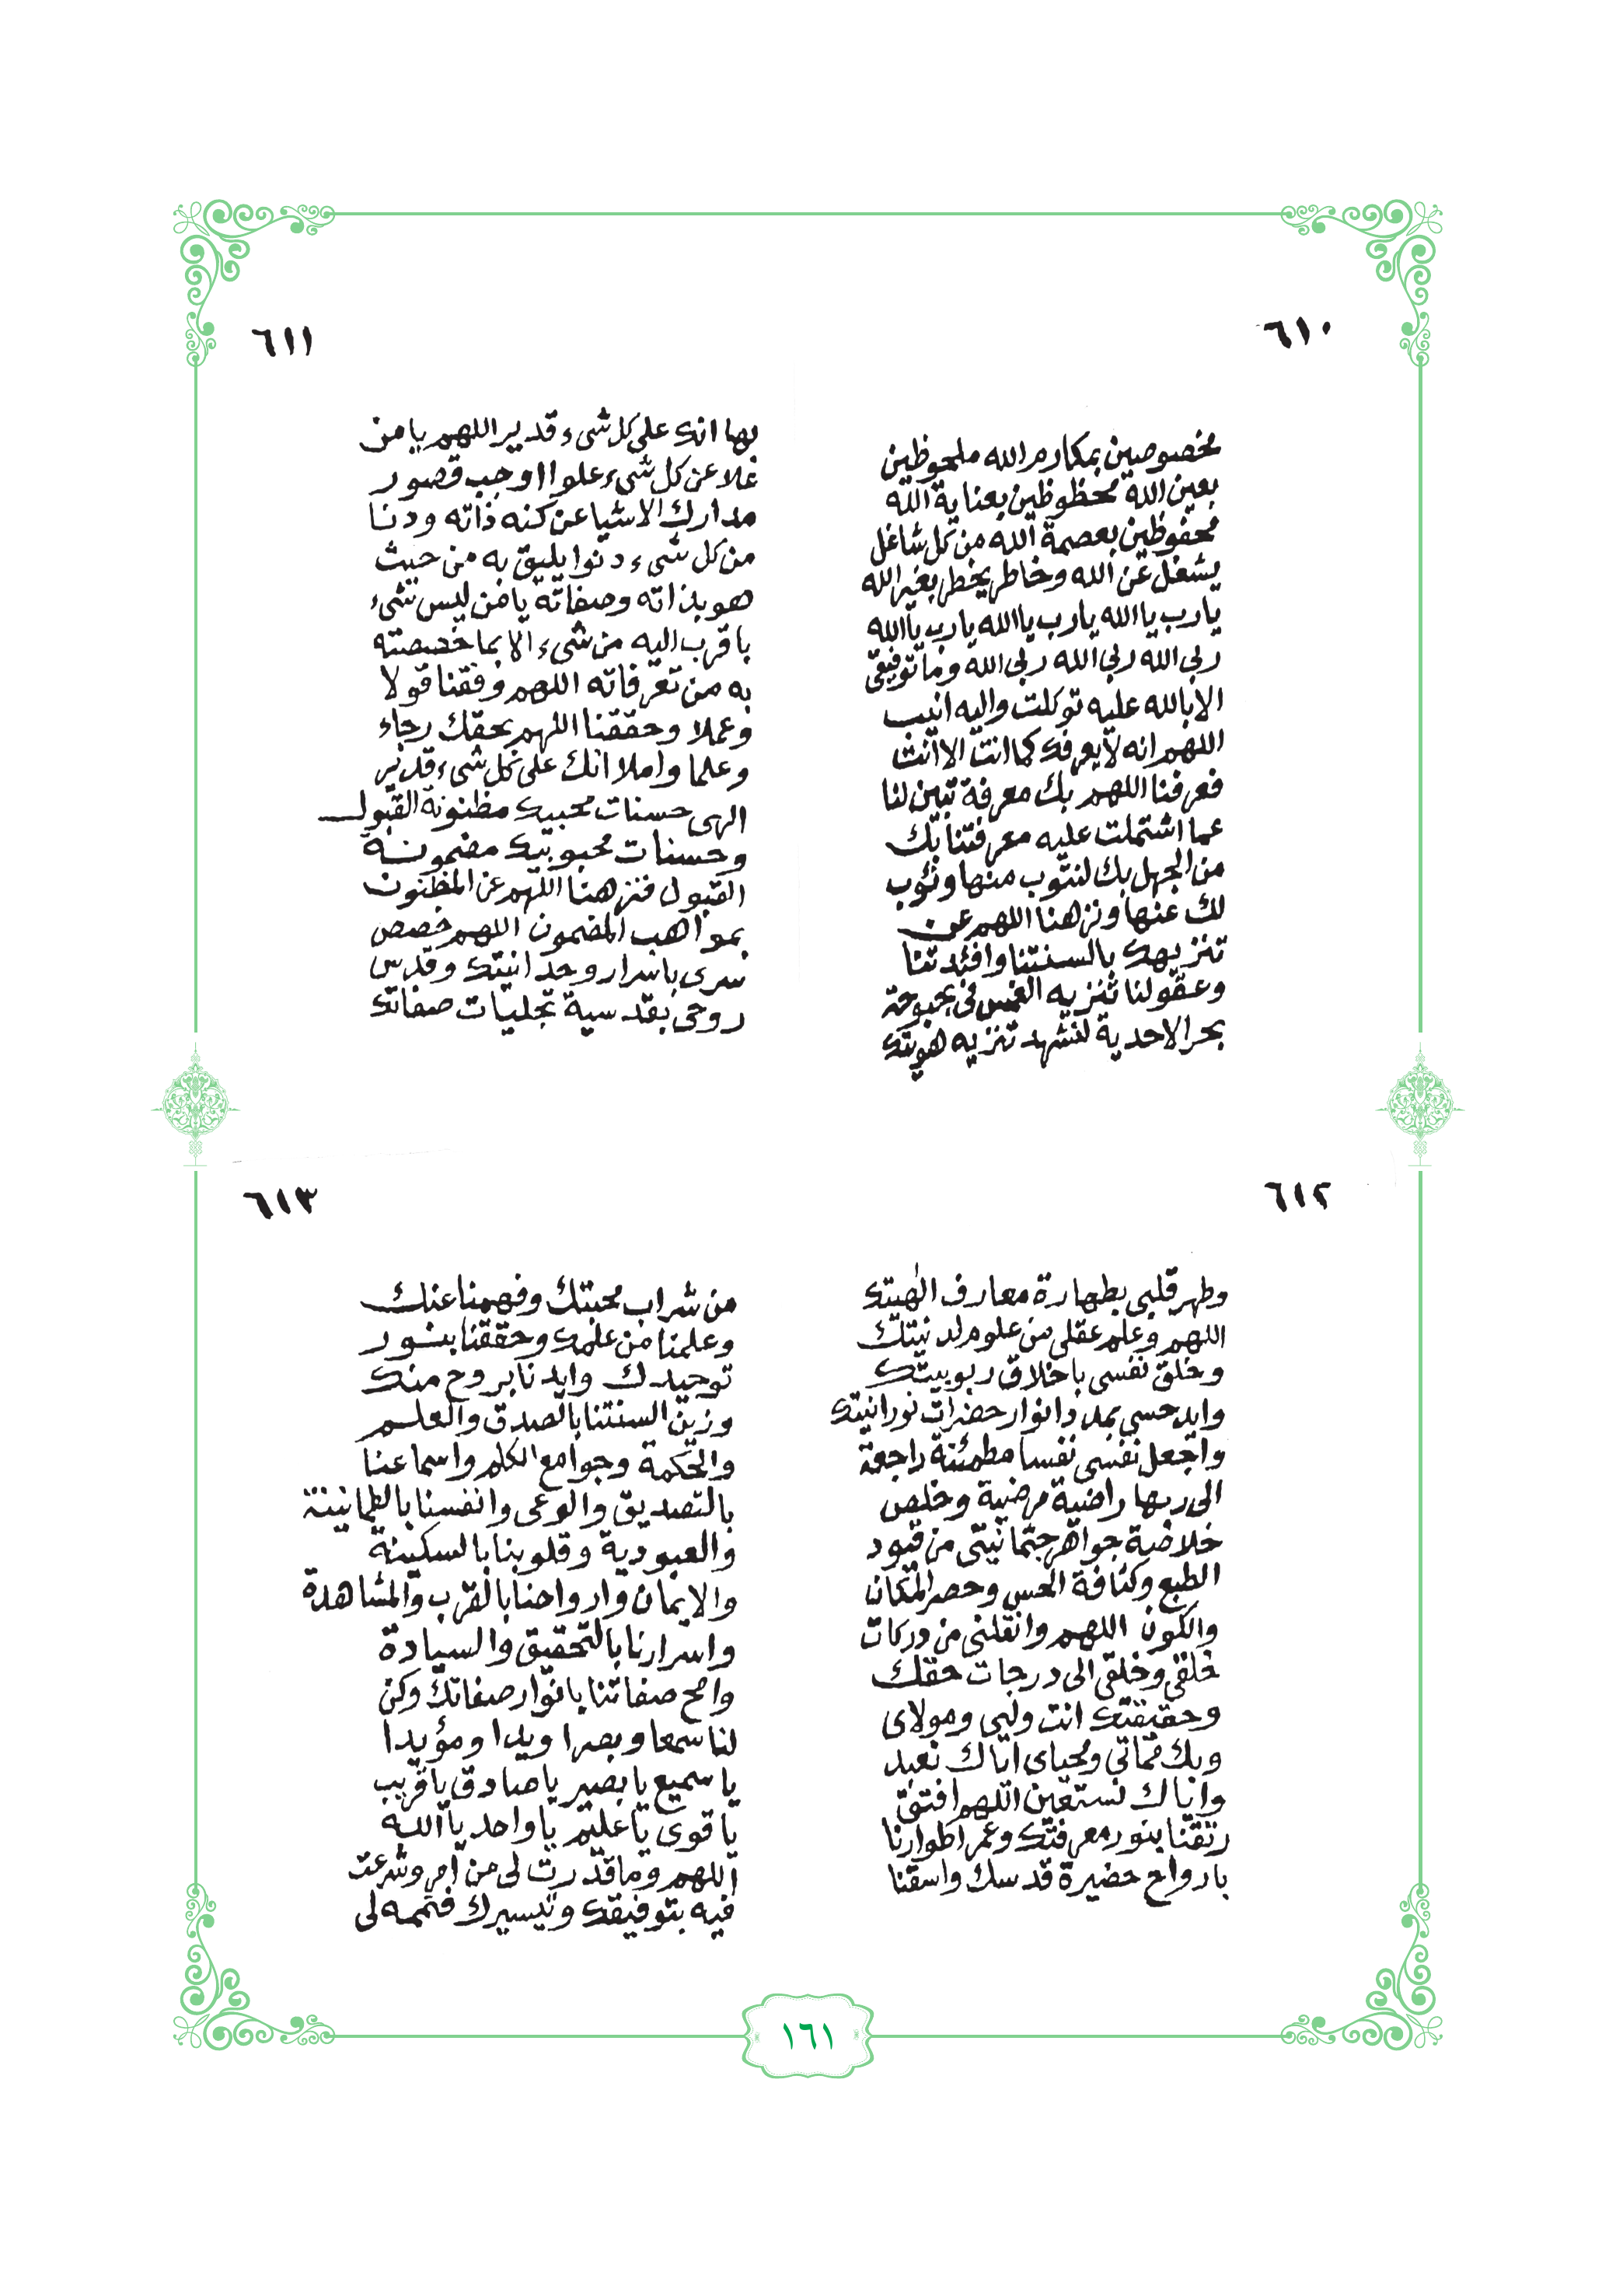 ٦١٠
مخصوصين بمكارم الله ملحوظين
بعين الله محظوظين بعناية الله
محفوظين بعصمة الله من كل شاغل
يشغل عن الله وخاطر يخطر بغير الله
يارب يا الله يارب يا الله يارب يا الله
ربى الله ربى الله ربى الله وما توفيقى
الا بالله عليه توكلت واليه انيب
اللهم انه لا يعرفك كما انت الا انت
فعرفنا اللهم بك معرفة تبين لنا
عما اشتملت عليه معرفتنا بك
من الجهل بك لنتوب منها ونؤب
لك عنها ونزهنا اللهم عن
تنزيهك بالسنتنا وافئدتنا
وعقولنا تنزيه الغمس فى بحبوحة
بحر الاحدية لنشهد تنزيه هويتك
٦١١
بها انك على كل شىء قدير اللهم يا من
علا عن كل شىء علوا اوجب قصور
مدارك الاشيا عن كنه ذاته ودنا
من كل شىء دنوا يليق به من حيث
هو بذاته وصفاته يا من ليس شىء
باقرب اليه من شىء الا بما خصصته
به من تعرفاته اللهم وفقنا قولا
وعملا وحققنا اللهم بحقك رجاء
وعلما واملا انك على كل شىء قدير
الهى حسنات محبيك مظنونة القبول
وحسنات محبوبيك مضمونة
القبول فنزهنا اللهم عن المظنون
بمواهب المضمون اللهم خصص
سرى باسرار وحدانيتك وقدس
روحى بقدسية تجليات صفاتك
٦١٢
وطهر قلبى بطهارة معارف الهيتك
اللهم وعلم عقلى من علوم لدنيتك
وخلق نفسى باخلاق ربوبيتك
وايد حسى بمدد انوار حضرات نورانيتك
واجعل نفسى نفسا مطمئنة راجعة
الى ربها راضية مرضية وخلص
خلاصة جواهر جثمانيتى من قيود
الطبع وكثافة الحس وحصر المكان
والكون اللهم وانقلنى من دركات
خلقى وخلقى الى درجات حقك
وحقيقتك انت وليى ومولاى
وبك مماتي ومحياى اياك نعبد
واياك نستعين اللهم افتق
رتقنا بنور معرفتك وعمر اطوارنا
بارواح حضيرة قدسك واسقنا
٦١٣
من شراب محبتك وفهمنا عنك
وعلمنا من علمك وحققنا بنور
توحيدك وايدنا بروح منك
وزين السنتنا بالصدق والعلم
والحكمة وجوامع الكلم واسماعنا
بالتصديق والوعى وانفسنا بالطمانيننة
والعبودية وقلوبنا بالسكينة
والايمان وارواحنا بالقرب والمشاهدة
واسرارنا بالتحقيق والسيادة
وامح صفاتنا بانوار صفاتك وكن
لنا سمعا وبصرا ويدا ومؤيدا
يا سميع يا بصير يا صادق يا قريب
يا قوى يا عليم يا واحد يا الله
اللهم وما قدرت لى من امر وشرعت
فيه بتوفيقك وتيسيرك فتممه لى
١٦١